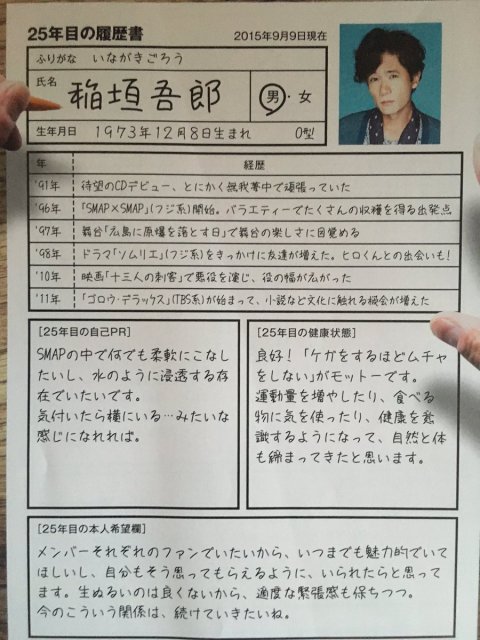 25年目の履歴書
2015年9月9日現在
ふりがな いながきごろう
氏名 稲垣吾郎 男・女
生年月日 1973年12月8日生まれ O型
年 経歴
'91年 待望のCDデビュー、とにかく無我夢中で頑張っていた
'96年 「SMAP×SMAP」(フジ系)開始。バラエティーでたくさんの収穫を得る出発点
'97年 舞台「広島に原爆を落とす日」で舞台の楽しさに目覚める
'98年 ドラマ「ソムリエ」(フジ系)をきっかけに友達が増えた。ヒロくんとの出会いも!
'10年 映画「十三人の刺客」で悪役を演じ、役の幅が広がった
'11年 「ゴロウ・デラックス」(TBS系)が始まって、小説など文化に触れる機会が増えた
[25年目の自己PR]
SMAPの中で何でも柔軟にこなし
たいし、水のように浸透する存
在でいたいです。
気付いたら横にいる…みたいな
感じになれれば。
[25年目の健康状態]
良好!「ケガをするほどムチャ
をしない」がモットーです。
運動量を増やしたり、食べる
物に気を使ったり、健康を意
識するようになって、自然と体
も締まってきたと思います。
[25年目の本人希望欄]
メンバーそれぞれのファンでいたいから、いつまでも魅力的でいて
ほしいし、自分もそう思ってもらえるように、いられたらと思って
ます。生ぬるいのは良くないから、適度な緊張感も保ちつつ。
今のこういう関係は、続けていきたいね。